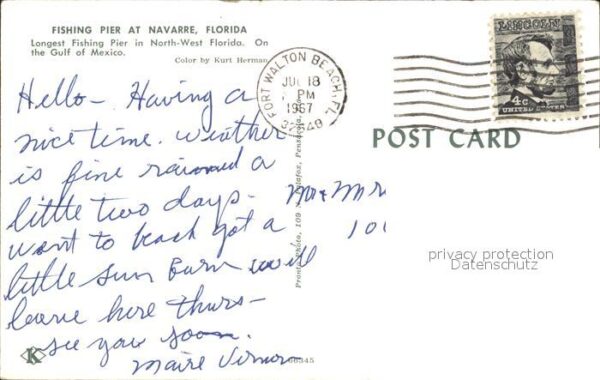 FISHING PIER AT NAVARRE, FLORIDA
Longest Fishing Pier in North-West Florida. On
the Gulf of Mexico.
Color by Kurt Herman
FORT WALTON BEACH, FL.
JUL 18
PM
1967
32548
LINCOLN
4c
UNITED STATES
POST CARD
Hello - Having a
nice time. Weather
is fine rained a
little two days -
went to beach got a
little sun burn will
leave here thurs -
see you soon.
Maire
Mr & Mr
10
privacy protection
Datenschutz
Photo, 109 Palafox, Pensacola,
K